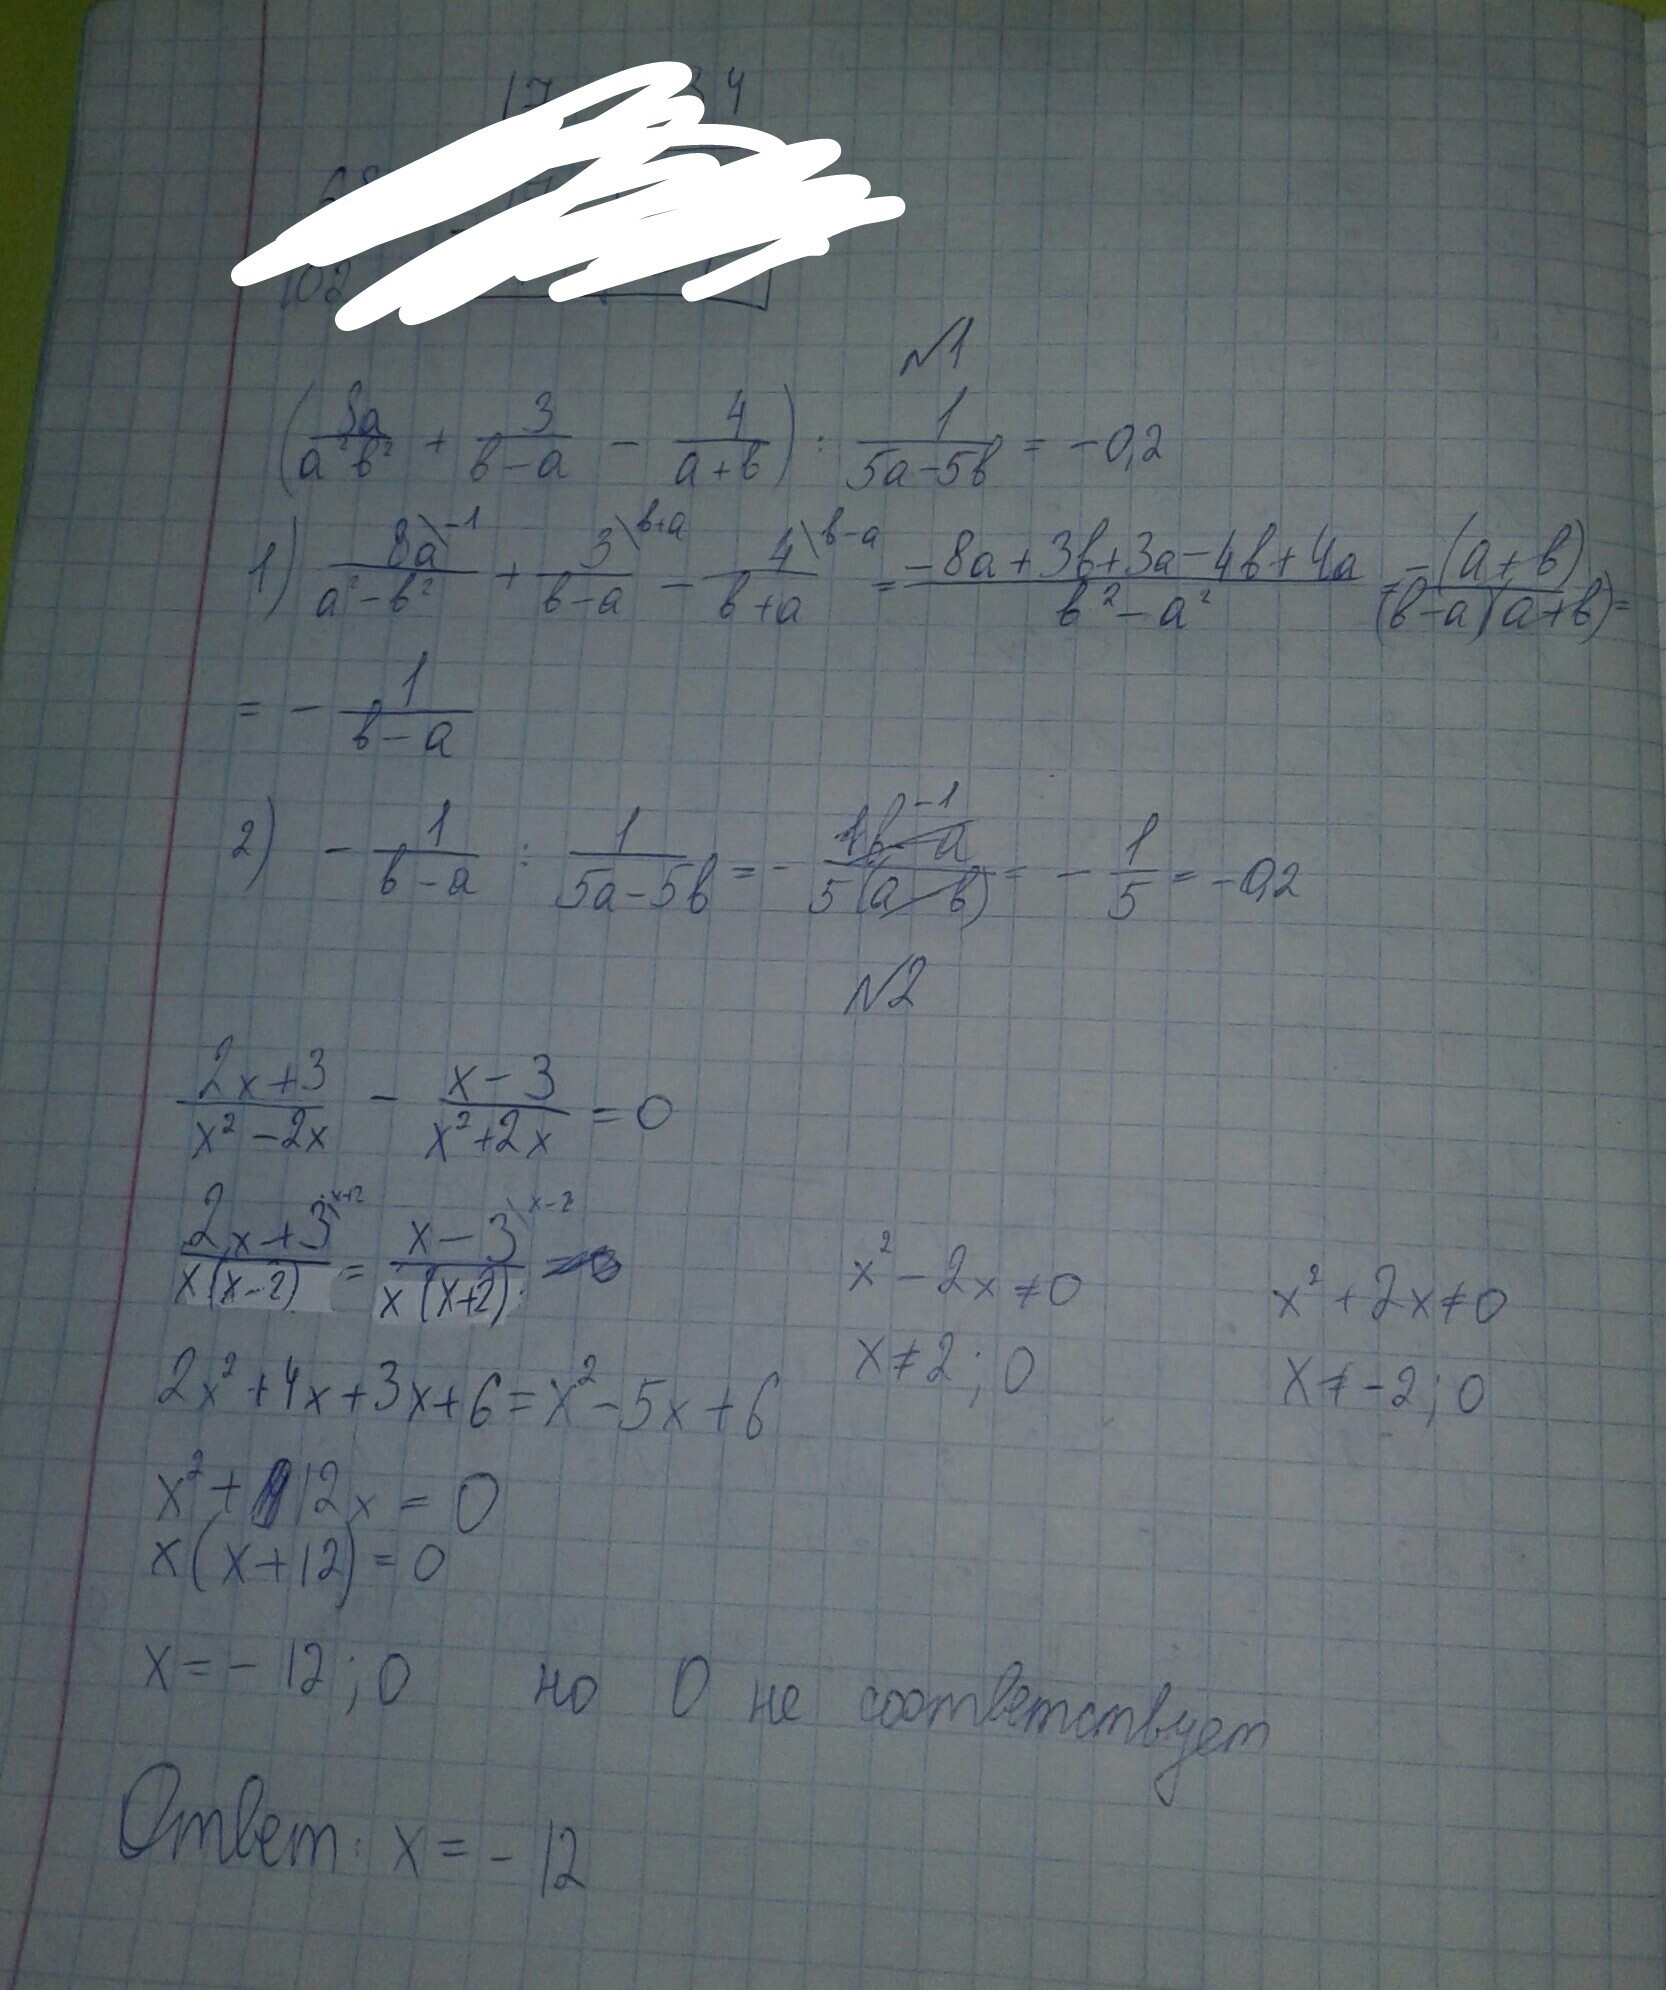 17 34
102
№1
(8a/(a²-b²) + 3/(b-a) - 4/(a+b)) : 1/(5a-5b) = -0,2
1) 8a\-1/(a²-b²) + 3\b+a/(b-a) - 4\b-a/(b+a) = (-8a+3b+3a-4b+4a)/(b²-a²) = -(a+b)/((b-a)(a+b)) =
= - 1/(b-a)
2) - 1/(b-a) : 1/(5a-5b) = - 1(b-a)-1/(5(a-b)) = - 1/5 = -0,2
№2
(2x+3)/(x²-2x) - (x-3)/(x²+2x) = 0
(2x+3)\x+2/(x(x-2)) = (x-3)\x-2/(x(x+2))
x²-2x≠0 x²+2x≠0
x≠2;0 x≠-2;0
2x²+4x+3x+6=x²-5x+6
x²+12x=0
x(x+12)=0
x=-12;0 но 0 не соответствует
Ответ: x=-12